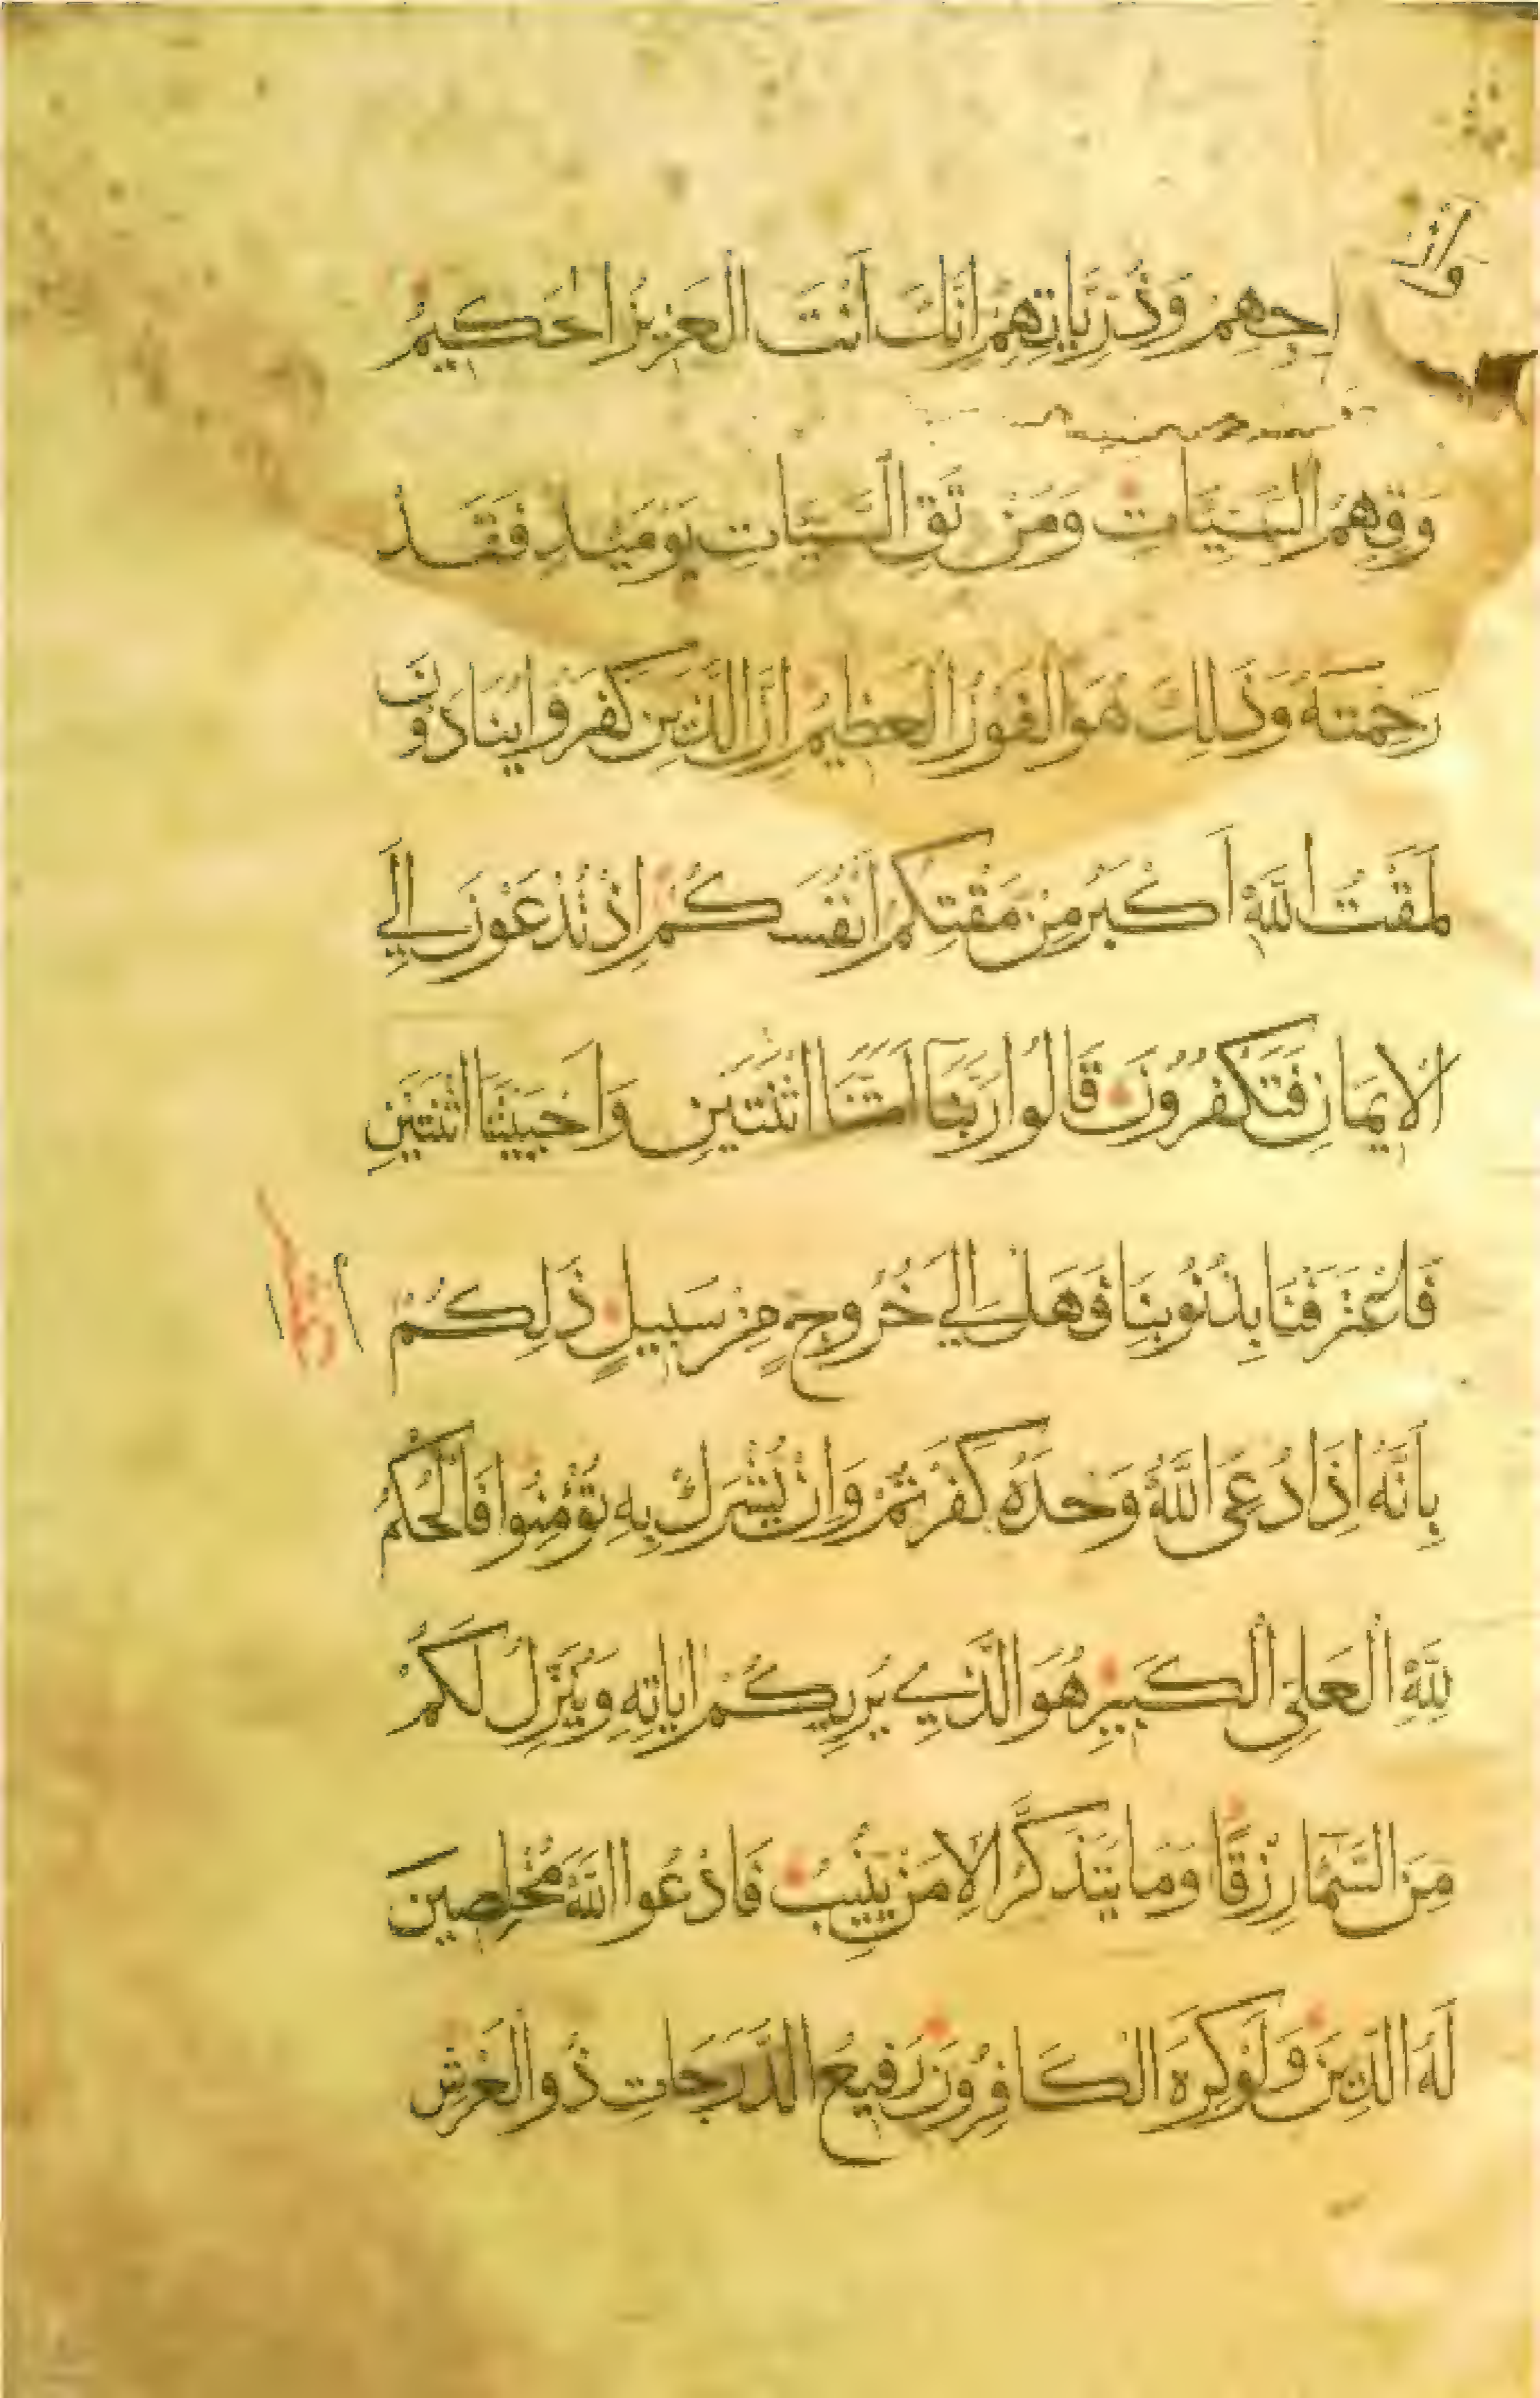 وَاَزْوَاجِهِمْ وَذُرِّيَّاتِهِمْ اِنَّكَ اَنْتَ الْعَزِيزُ الْحَكِيمُ
وَقِهِمُ السَّيِّئَاتِ وَمَنْ تَقِ السَّيِّئَاتِ يَوْمَئِذٍ فَقَدْ
رَحِمْتَهُ وَذَلِكَ هُوَ الْفَوْزُ الْعَظِيمُ اِنَّ الَّذِينَ كَفَرُوا يُنَادَوْنَ
لَمَقْتُ اللَّهِ اَكْبَرُ مِنْ مَقْتِكُمْ اَنْفُسَكُمْ اِذْ تُدْعَوْنَ اِلَي
الْاِيمَانِ فَتَكْفُرُونَ قَالُوا رَبَّنَا اَمَتَّنَا اثْنَتَيْنِ وَاَحْيَيْتَنَا اثْنَتَيْنِ
فَاعْتَرَفْنَا بِذُنُوبِنَا فَهَلْ اِلَي خُرُوجٍ مِنْ سَبِيلٍ ذَلِكُمْ
بِاَنَّهُ اِذَا دُعِيَ اللَّهُ وَحْدَهُ كَفَرْتُمْ وَاِنْ يُشْرَكْ بِهِ تُؤْمِنُوا فَالْحُكْمُ
لِلَّهِ الْعَلِيِّ الْكَبِيرِ هُوَ الَّذِي يُرِيكُمْ اٰيَاتِهِ وَيُنَزِّلُ لَكُمْ
مِنَ السَّمَآءِ رِزْقًا وَمَا يَتَذَكَّرُ اِلَّا مَنْ يُنِيبُ فَادْعُوا اللَّهَ مُخْلِصِينَ
لَهُ الدِّينَ وَلَوْ كَرِهَ الْكَافِرُونَ رَفِيعُ الدَّرَجَاتِ ذُو الْعَرْشِ